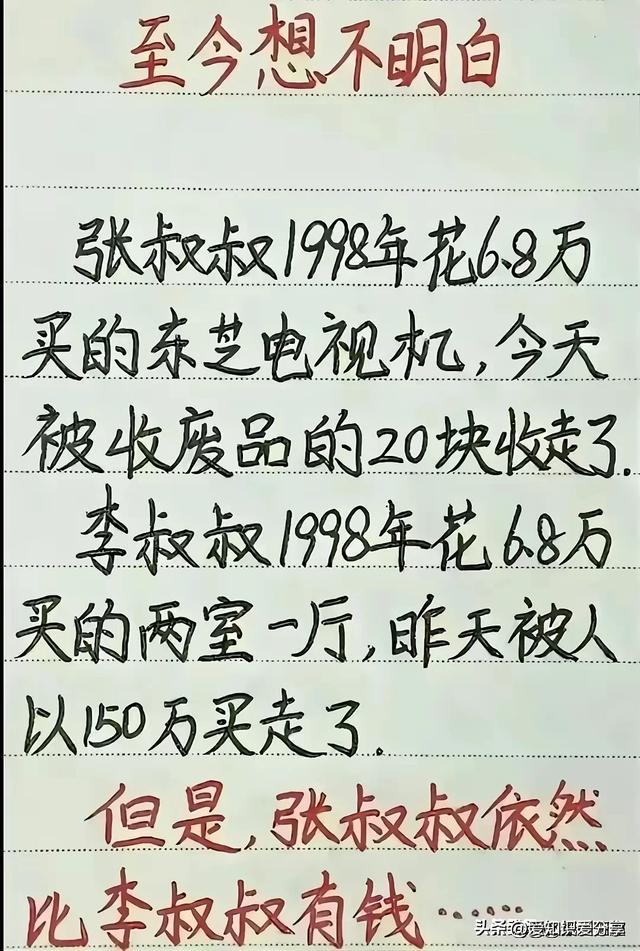 至今想不明白
张叔叔1998年花6.8万
买的东芝电视机,今天
被收废品的20块收走了.
李叔叔1998年花6.8万
买的两室一厅,昨天被人
以150万买走了.
但是,张叔叔依然
比李叔叔有钱……
头条@爱知识爱分享